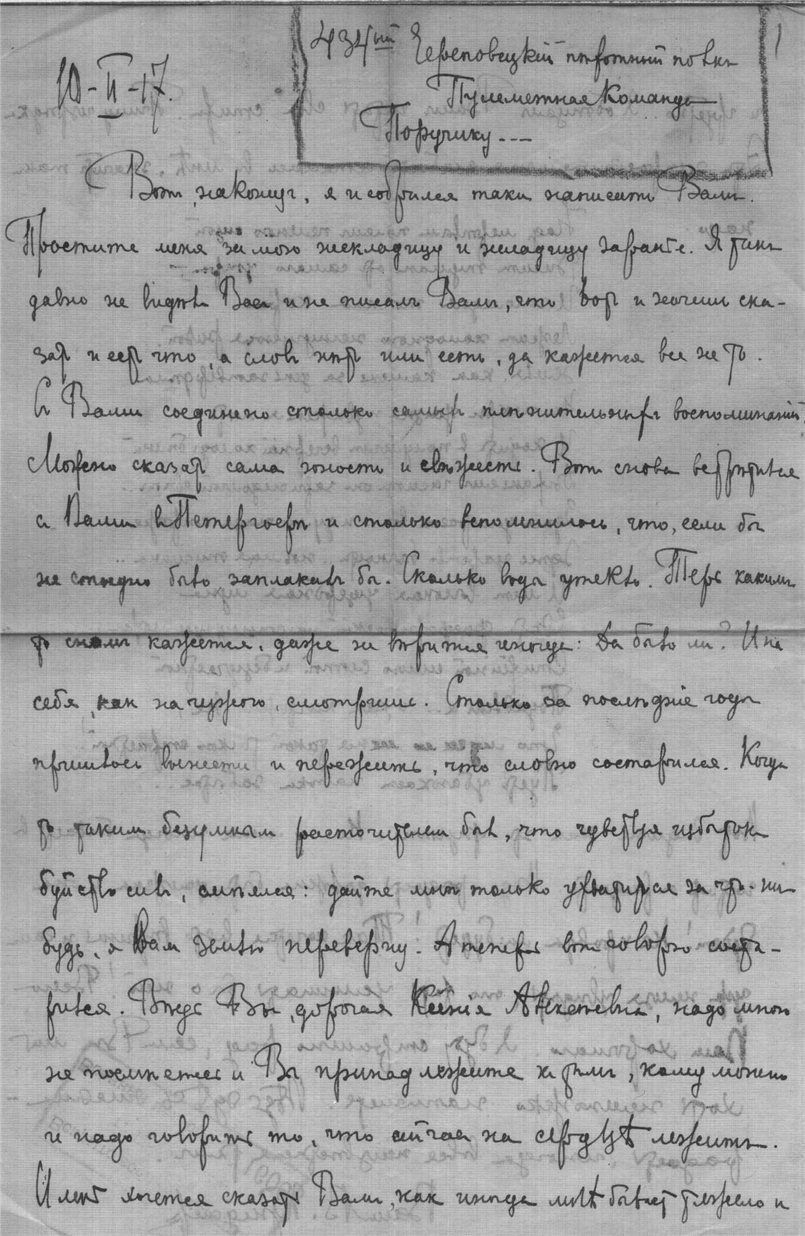 1
434ый Череповецкій пѣхотный полкъ
10-II-17.
Пулеметная Команда
Поручику ---
Вот, наконец, я и собрался таки написать Вамъ.
Простите меня за мою нескладицу и неладицу заранѣе. Я такъ
давно не видѣлъ Васъ и не писалъ Вамъ, что вот и хочешь ска-
зать и есть что, а словъ нѣтъ или есть, да кажется все не то.
Съ Вами соединено столько самыхъ плѣнительныхъ воспоминаній.
Можно сказать сама юность и свѣжесть. Вот снова встрѣтился
съ Вами въ Петергофѣ и столько вспомнилось, что, если бы
не стыдно было заплакалъ бы. Сколько воды утекло. Теперь какимъ
то сномъ кажется, даже не вѣрится иногда: Да было ли? И на
себя, как на чужого, смотришь. Столько за послѣдніе годы
пришлось вынести и пережить, что словно состарился. Когда
то такимъ безумнымъ расточителемъ былъ, что чувствуя избытокъ
буйств силъ, смѣялся: дайте мнѣ только ухватиться за что-ни
будь, я Вам землю переверну. А теперь вот говорю соста-
рился. Вѣдь Вы, дорогая Ксенія, надо мною
не посмѣетесь и Вы принадлежите къ тѣмъ, кому можно
и надо говорить то, что сейчас на сердцѣ лежитъ.
И мнѣ хочется сказать Вамъ, как иногда мнѣ бывает тяжело и